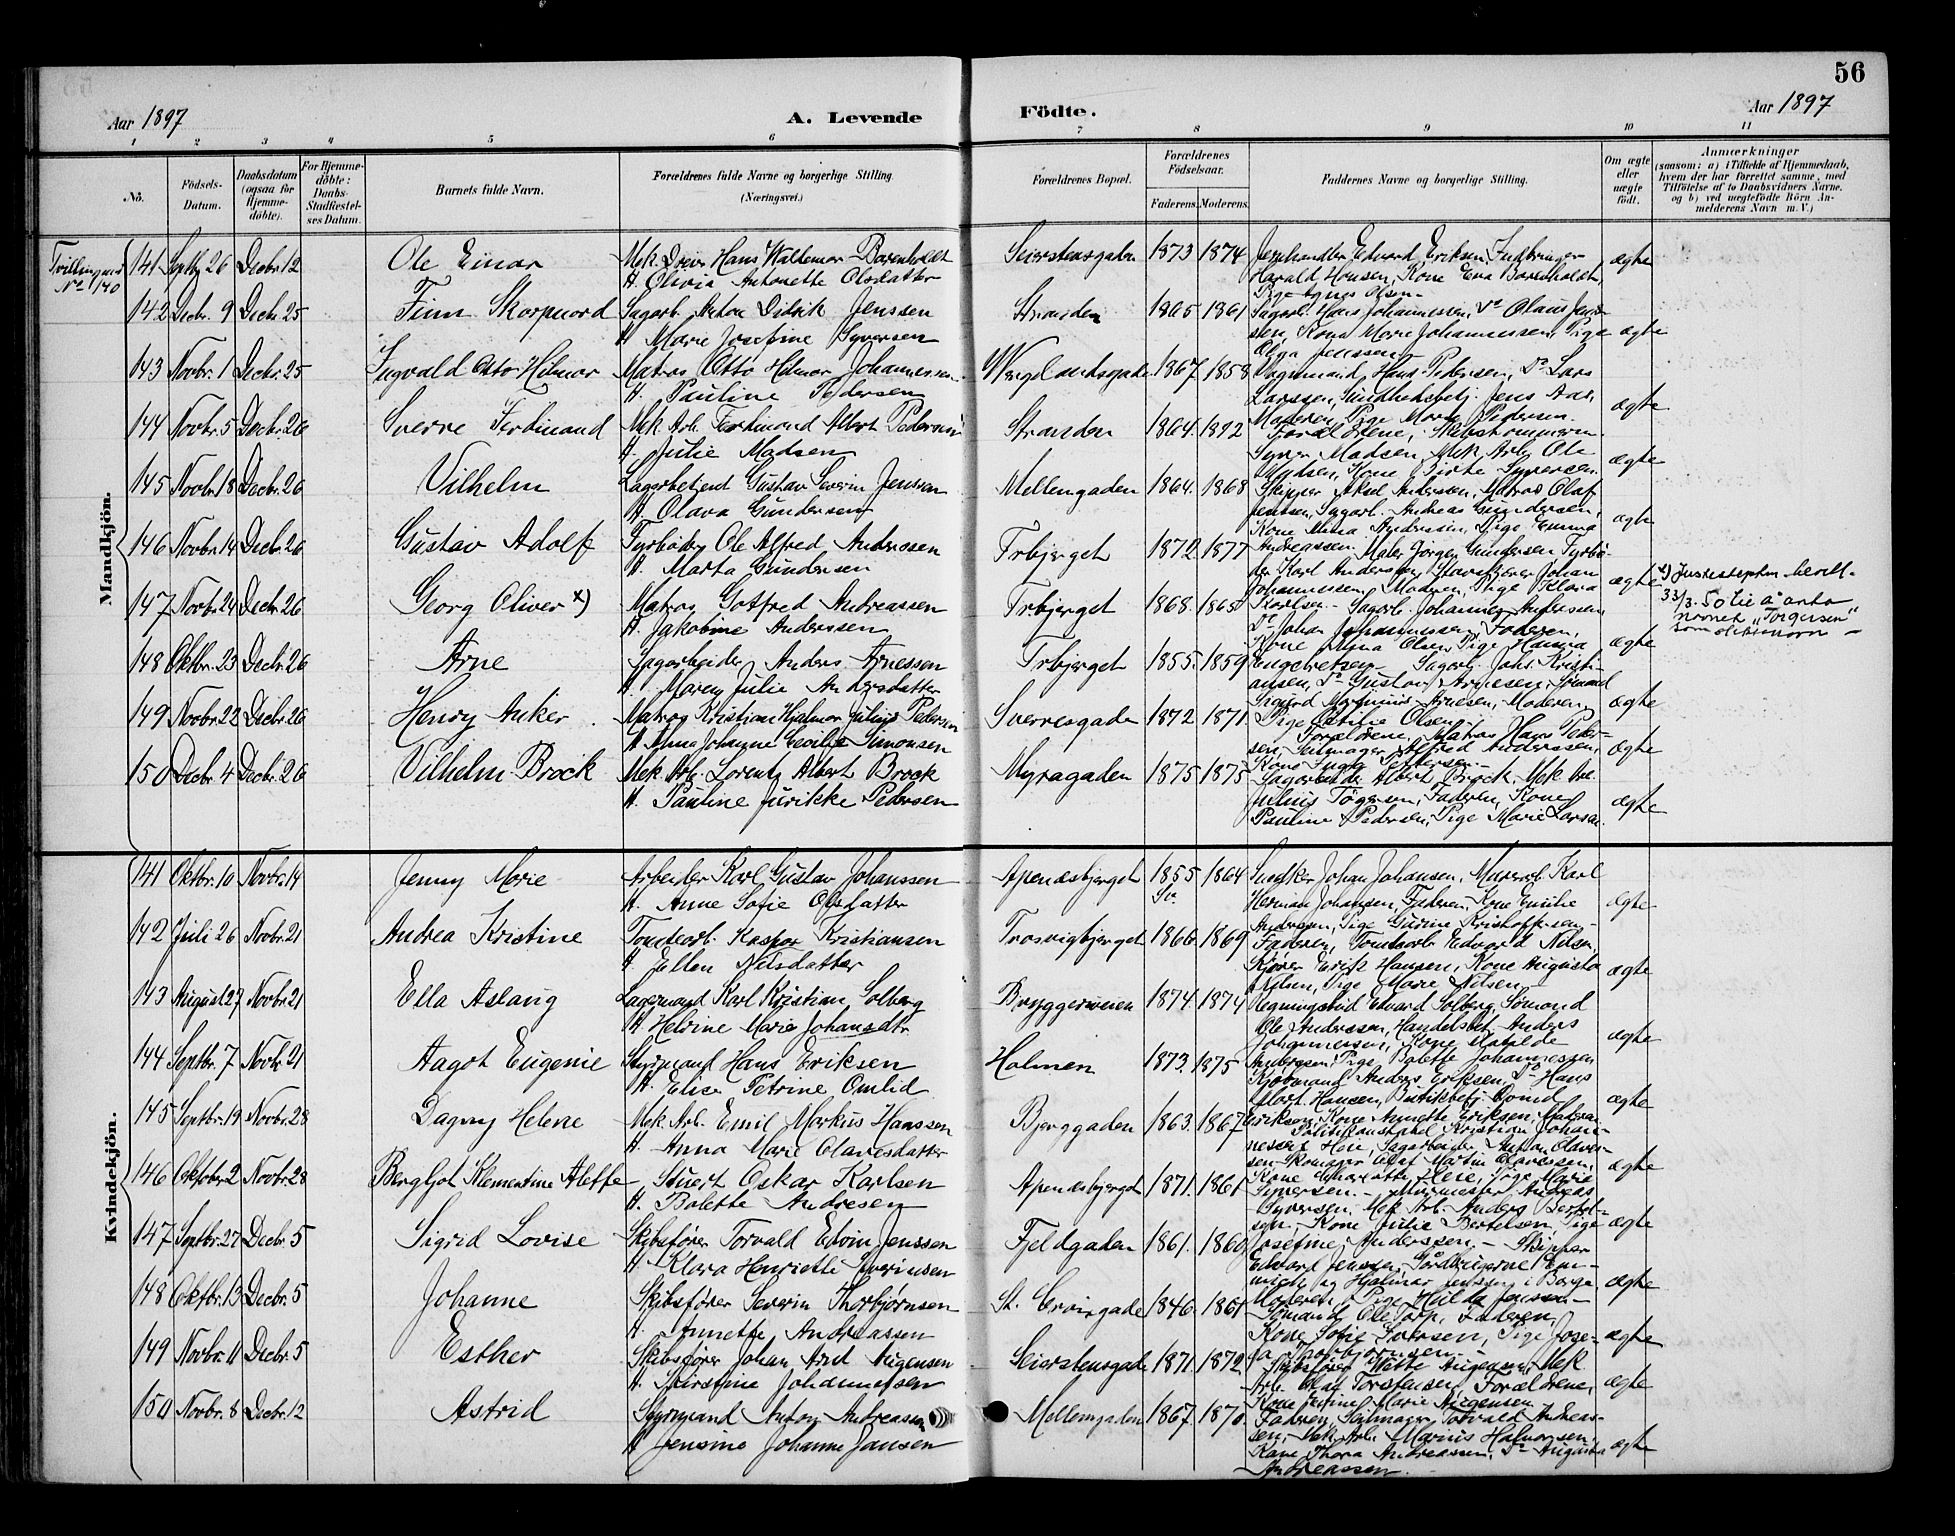 56
Aar 1897
A. Levende
Födte.
Aar 1897
1 2 3 4 5 6 7 8 9 10 11
No.
Födsels-Datum.
Daabsdatum (ogsaa for Hjemme-döbte).
For Hjemme-döbte: Daabs-Stadfæstel-ses Datum.
Barnets fulde Navn.
Forældrenes fulde Navne og borgerlige Stilling.
(Næringsvei.)
Forældrenes Bopæl.
Forældrenes Födselsaar.
Faderens. Moderens.
Faddernes Navne og borgerlige Stilling.
Om ægte eller uægte födt.
Anmærkninger
(saasom: a) i Tilfælde af Hjemmedaab,
hvem der har forrettet samme, med
Tilföielse af to Daabsvidners Navne,
og b) ved uægtefödte Börn An-
melderens Navn m. V.)
Mandkjön.
Tvilling med No 140
141 Septbr 26 Decbr. 12 Ole Einar
Hans Waldemar Barenholdt
H. Olivia Antonette Olsdatter
1873 1874 Edvard Eriksen,
Harald Hansen, Kone Eva Barenholdt,
Pige Agnes Olsen
ægte
142 Decbr. 9 Decbr. 25
Sagarb. Anton Didrik Jenssen
H. Marie Josefine Syversen
Stranden 1865 1861 Sagarb. Hans Johannessen, Do Olaus Jens-
sen, Kone Marie Johannessen, Pige
Olga Jenssen
ægte
143 Novbr. 1 Decbr. 25 Ingvald Otto Hilmar
Matros Otto Hilmar Johannessen
H. Pauline Pedersen
Wergelandsgade 1867. 1858 Hans Pedersen, Do Lars
Larssen, Jens Aas,
Moderen, Pige Pedersen
ægte
144 Novbr. 5 Decbr. 26 Sverre Ferdinand
Mek. Arb. Ferdinand Albert Pedersen
H. Julie Madsen
Stranden 1864. 1872 Forældrene,
Syver Madsen, Mek. Arb. Ole
Madsen, Kone Birte Syversen
ægte
145 Novbr. 18 Decbr. 26 Vilhelm
Lagerbetjent Gustav Severin Jensen
H. Olava Gundersen
Mellemgaden 1864. 1868 Skipper Aksel Andersen, Matros Olaf
Jenssen, Sagarb. Andreas Gundersen,
Kone Mina Andersen, Pige Emma
Andreassen
ægte
146 Novbr. 14 Decbr. 26 Gustav Adolf
Fyrböder Ole Alfred Anderssen
H. Marta Gundersen
Trbjerget 1872 1877 Maler Jörgen Gundersen Fyrbö-
der Karl Andersen, Johan
Johannessen, Moderen, Pige
Karlsen
ægte
147 Novbr. 24 Decbr. 26 Georg Oliver x)
Matros Gotfred Andreassen
H. Jakobine Anderssen
Trbjerget 1868. 1865 Sagarb. Johannes Andersen
Do Johan Johannessen, Faderen,
Kone Olsen, Pige Hanna
ægte
x) Justisdepten. bevill.
33/3. 50 til å anta
navnet „Torgersen“
som slektsnavn
148 Oktbr. 23 Decbr. 26 Arne
Sagarbeider Anders Arnessen
H. Maren Julie Andersdatter
Trbjerget 1855. 1859 Sagarb. Johs. Kristi-
ansen, Do Gustav Arnesen, Sömand
Sigurd Arnesen, Moderen,
Pige Olsen
ægte
149 Novbr. 22 Decbr. 26 Henry Anker
Matros Kristian Hjalmar Julius Pedersen
H. Alma Johanne Cecilie Simonsen
Sverresgade 1872 1871. Forældrene, Matros Hans Peder-
sen, Seilmager Alfred Anderssen,
Kone Inga Pettersen
ægte
150 Decbr. 4 Decbr. 26 Vilhelm Brock
Mek. Arb. Lorentz Albert Brock
H. Pauline Jurikke Pedersen
Myragaden 1875 1875 Sagarbeider Albert Brock, Mek. Arb.
Julius Tögersen, Faderen, Kone
Pauline Pedersen, Pige Marie Larsen
ægte
Kvindekjön.
141 Oktbr. 10 Novbr. 14 Jenny Marie
Arbeider Karl Gustav Johanssen
H. Anne Sofie Olsdatter
Apenæsbjerget 1855 1864 Snedker Johan Johansen, Karl
Herman Johansen, Faderen, Kone Emilie
Andersen, Pige Gurine Kristoffersen
ægte
142 Juli 26 Novbr. 21 Andrea Kristine
Tomtearb. Kaspar Kristiansen
H. Jellen Nilsdatter
Trosvigbjerget 1866 1869 Faderen, Tomtearb. Edvard Nilsen,
Kjörer Erik Hansen, Kone Augusta
Nilsen, Pige Marie Nilsen
ægte
143 August 27 Novbr. 21 Ella Aslaug
Lagermand Karl Kristian Solberg
H. Helvine Marie Johansdtr
Bryggeriveien 1874. 1874 Edvard Solberg, Sömand
Ole Anderssen, Handelsbet. Anders
Johannessen, Kone Matilde
Anderssen, Pige Bolette Johannessen
ægte
144 Septbr. 7 Novbr. 21 Aagot Eugenie
Styrmand Hans Eriksen
H. Elise Petrine Omlid
Holmen 1873. 1875 Kjöbmand Anders Eriksen, Do Hans
Mart. Hansen, Butikbetj. Omlid
Eriksen, Kone Annette Eriksen
ægte
145 Septbr. 19 Novbr. 28 Dagny Helene
Mek. Arb. Emil Markus Hanssen
H. Anna Marie Olavesdatter
Bjerggaden 1863. 1867 Politikonstabel Kristian Johan-
nessen Heie, Sagarbeider Anton Olaves-
sen, Skomager Olaf Martin Olavessen,
Kone Charlotte Heie, Pige Marie
Syversen
ægte
146 Oktober 2 Novbr. 28 Bergljot Klementine Aleffe
Stuert Oskar Karlsen
H. Bolette Andresen
Apenæsbjerget 1871. 1861 Murmester Andreas
Syversen, Mek. Arb. Anders Bertel-
sen, Kone Julie Bertelsen, Pige
Josefine Anderssen
ægte
147 Septbr. 27 Decbr. 5 Sigrid Lovise
Skibsförer Torvald Edvin Jenssen
H. Klara Henriette Iverinsen
Fjeldgaden 1861. 1860 Skipper
Edvard Jenssen, Gårdbrugerne
og Hjalmar Jenssen i Borge
Moderen, Pige Hilda Jenssen
ægte
148 Oktbr. 13 Decbr. 5 Johanne
Skibsförer Severin Thorbjörnsen
H. Annette Andreassen
St. Croixgade 1846. 1861 Sömand Ole Torp, Faderen,
Kone Sofie Iversen, Pige Jose-
fa Thorbjörnsen
ægte
149 Novbr. 11 Decbr. 5 Esther
Skibsförer Johan Arnt Augensen
H. Kirstine Johannessen
Seierstensgade 1871. 1872 Skibsförer Wette Augensen, Mek.
Arb. Olaf Torstensen, Forældrene,
Kone Marie Augensen
ægte
150 Novbr. 8 Decbr. 12 Astrid
Styrmand Anton Andreassen
H. Jensine Johanne Jansen
Mellemgaden 1867. 1870. Faderen, Seilmager Torvald Andreas-
sen, Mek. Arb. Marius Halvorsen,
Kone Thora Andreassen, Do Augusta
Andreassen.
ægte